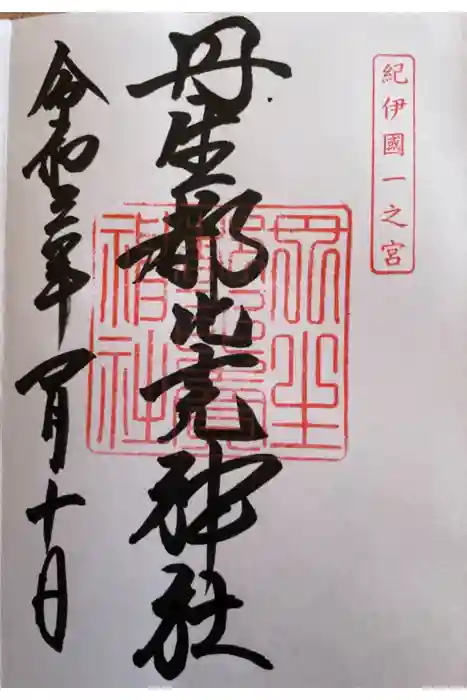 紀伊國一之宮
丹生都比売神社
丹生
都比賣
神社
令和三年 月十日